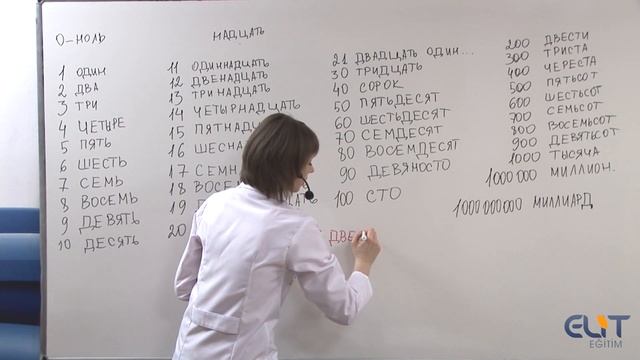 О-НОЛЬ
1 ОДИН
2 ДВА
3 ТРИ
4 ЧЕТЫРЕ
5 ПЯТЬ
6 ШЕСТЬ
7 СЕМЬ
8 ВОСЕМЬ
9 ДЕВЯТЬ
10 ДЕСЯТЬ
НАДЦАТЬ
11 ОДИННАДЦАТЬ
12 ДВЕНАДЦАТЬ
13 ТРИНАДЦАТЬ
14 ЧЕТЫРНАДЦАТЬ
15 ПЯТНАД
16 ШЕСНА
17 СЕМН
18 ВОСЕ
19
20
21 ДВАДЦАТЬ ОДИН...
30 ТРИДЦАТЬ
40 СОРОК
50 ПЯТЬДЕСЯТ
60 ШЕСТЬДЕСЯТ
70 СЕМДЕСЯТ
80 ВОСЕМДЕСЯТ
90 ДЕВЯНОСТО
100 СТО
ДВЕ
200 ДВЕСТИ
300 ТРИСТА
400 ЧЕРЕСТА
500 ПЯТЬСОТ
600 ШЕСТЬСОТ
700 СЕМЬСОТ
800 ВОСЕМЬСОТ
900 ДЕВЯТЬСОТ
1000 ТЫСЯЧА
1000 000 МИЛЛИОН.
1000 000 000 МИЛЛИАРД
ELIT
EĞİTİM